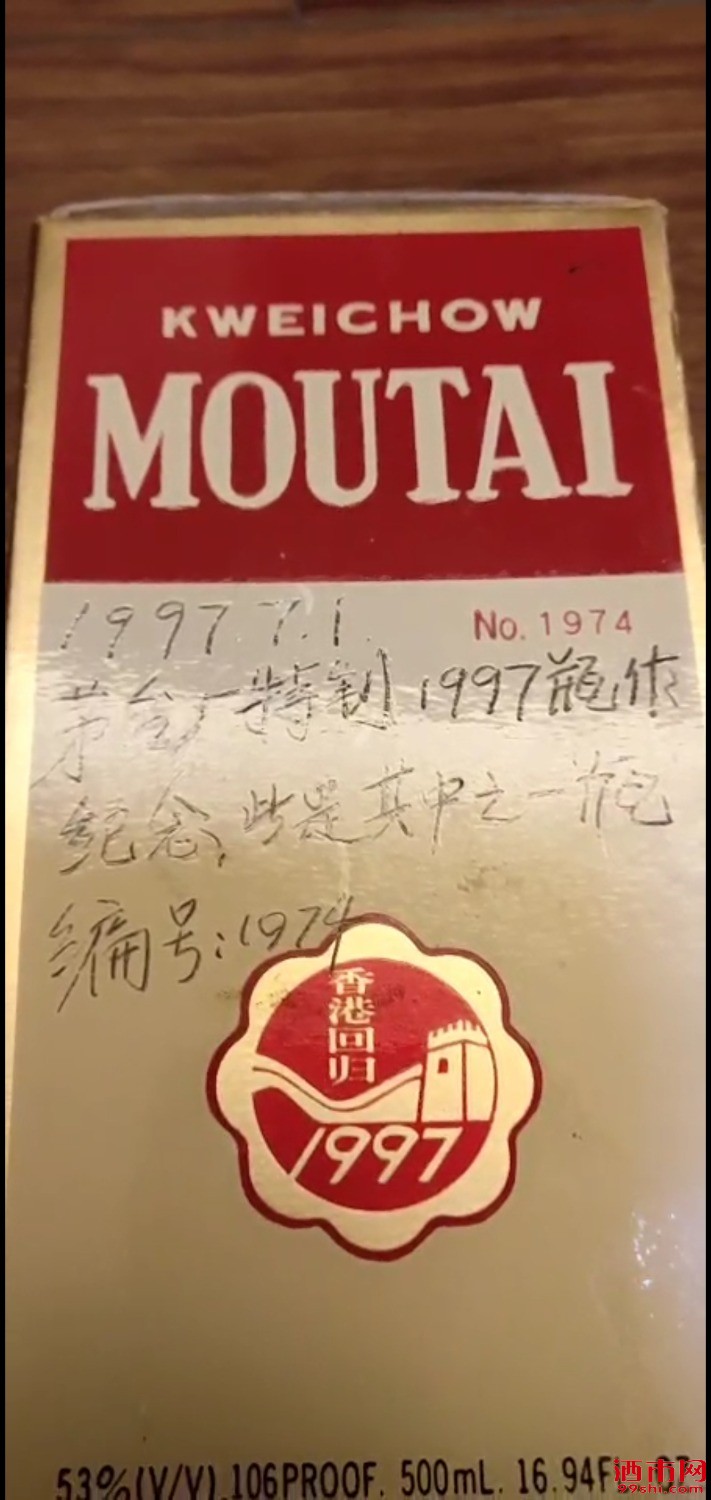 KWEICHOW
MOUTAI
1997.7.1.
No. 1974
茅台厂特制1997瓶作
纪念，此是其中之一瓶
编号：1974
香港回归
1997
53%(V/V). 106PROOF. 500mL. 16.94F
酒市网
99shi.com